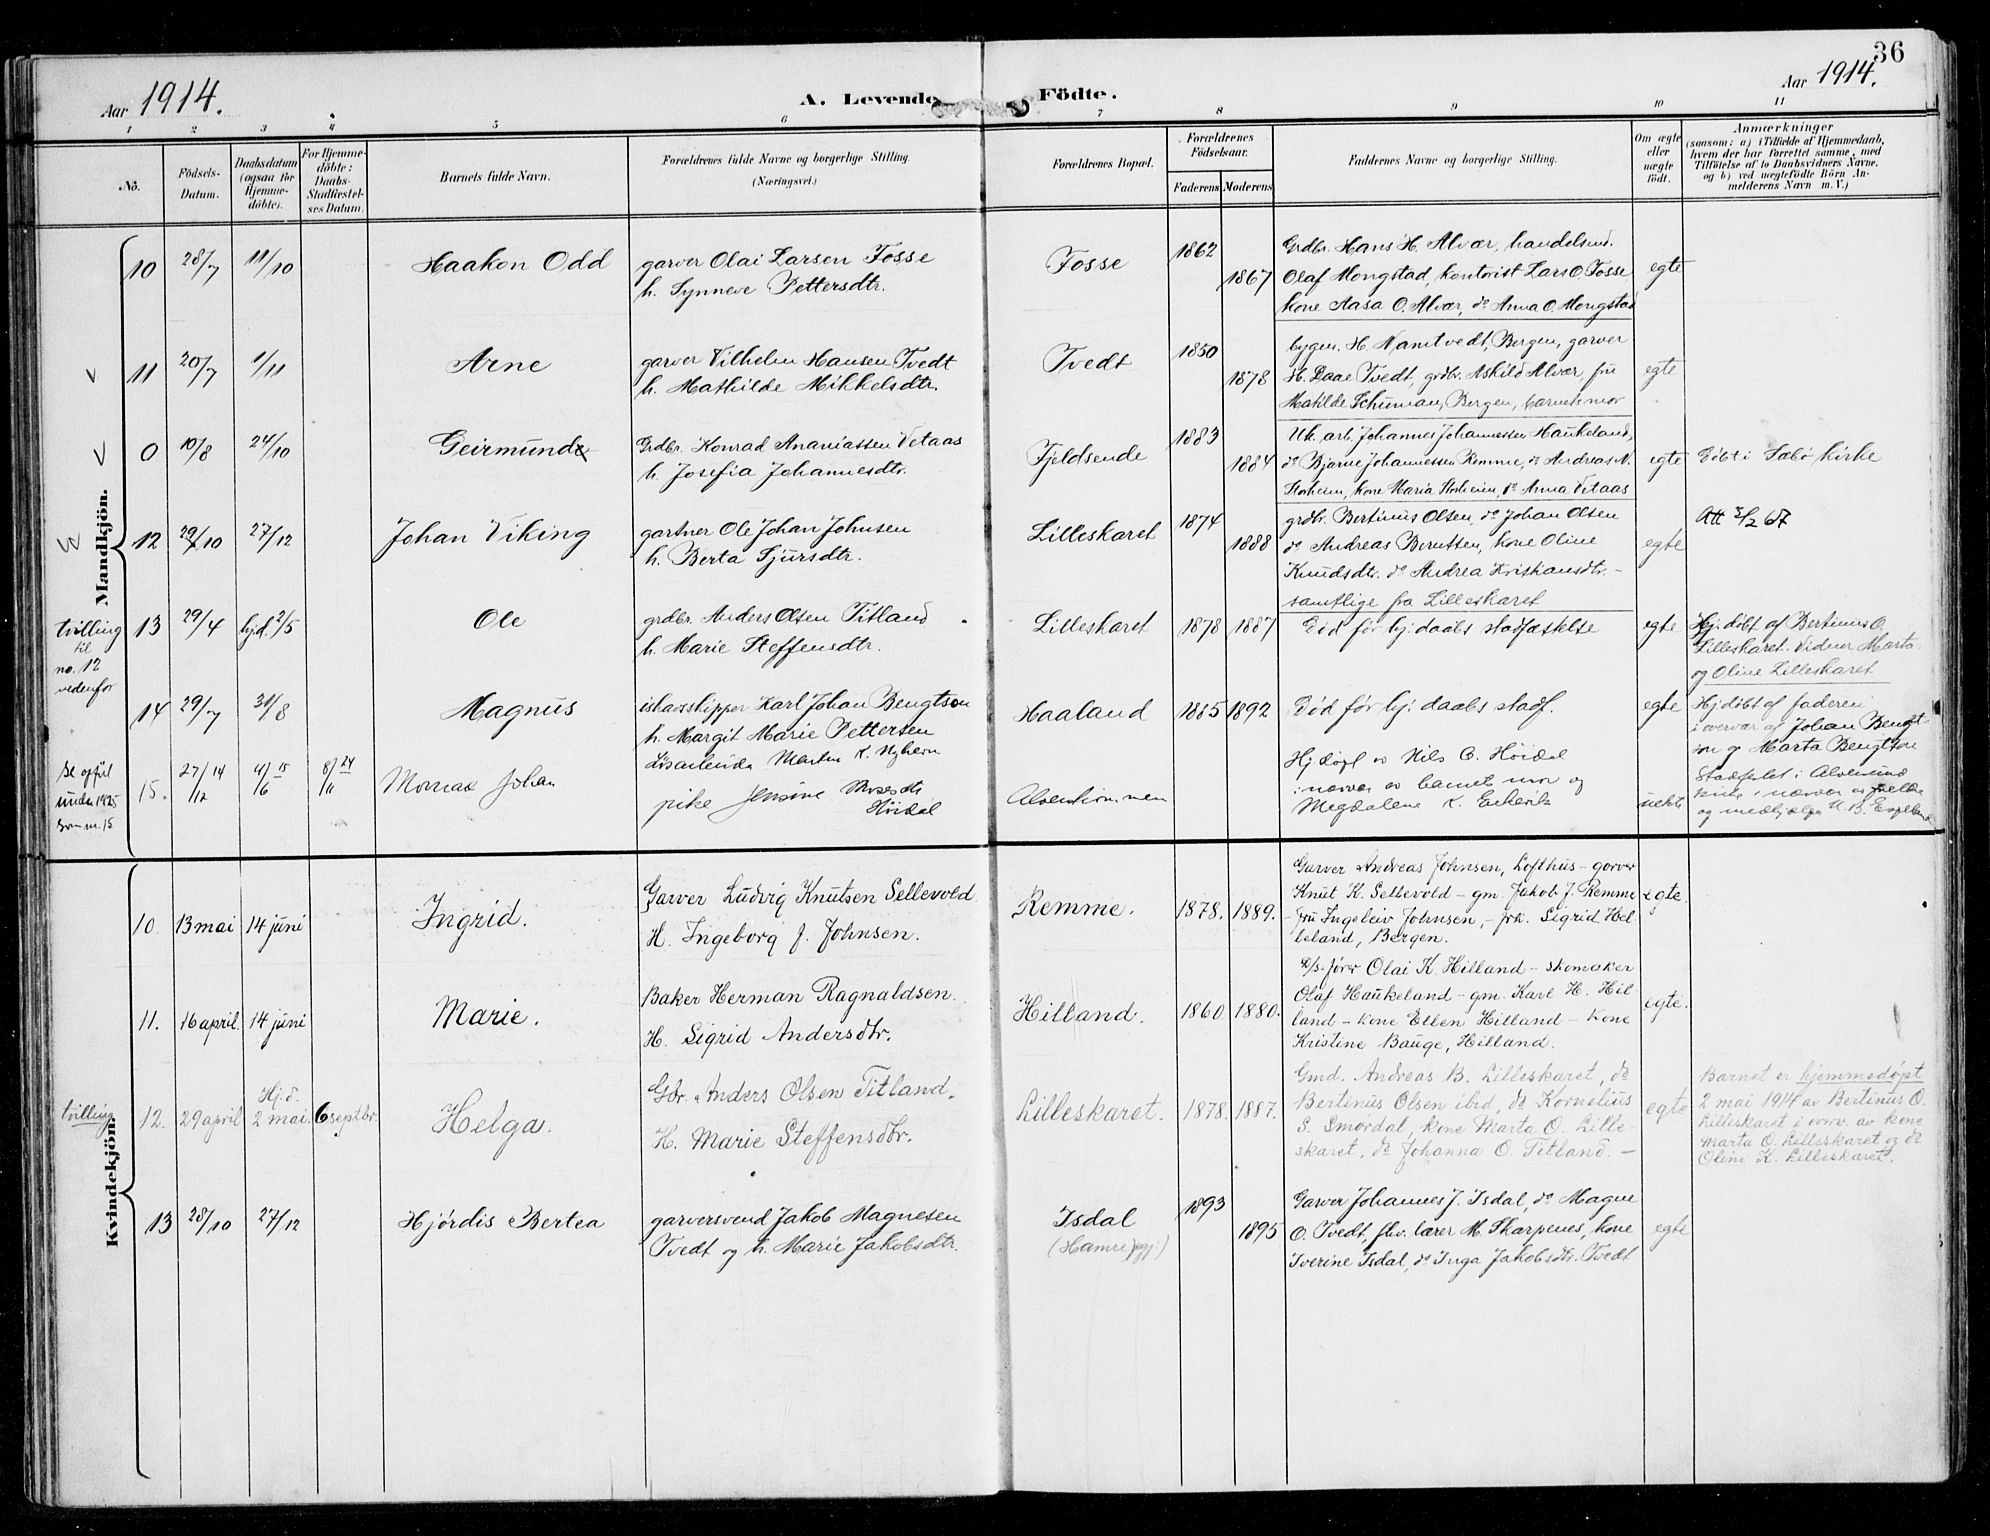 36
Aar 1914.
A. Levende Födte.
Aar 1914.
1 2 3 4 5 6 7 8 9 10 11
No.
Födsels-Datum.
Daabsdatum (ogsaa for Hjemmedöbte).
For Hjemmedöbte: Daabs-Stadfæstelses Datum.
Barnets fulde Navn.
Forældrenes fulde Navne og borgerlige Stilling.
(Næringsvei.)
Forældrenes Bopæl.
Forældrenes Födselsaar.
Faderens. Moderens.
Faddernes Navne og borgerlige Stilling.
Om ægte eller uægte födt.
Anmærkninger
(saasom: a) i Tilfælde af Hjemmedaab,
hvem der har forrettet samme, med
Tilföielse af to Daabsvidners Navne.
og b) ved uægtefödte Börn An-
melderens Navn m. V.)
Mandkjön.
10 28/7 11/10 Haakon Odd
garver Olai Larsen Fosse
h. Synneve Pettersdtr.
Fosse 1862 1867
Grdbr. Hans H. Alvær, handelsmd.
Olaf Mongstad, kontorist Lars O. Fosse
kone Aasa O. Alvær, do Anna O. Mongstad
egte
11 20/7 1/11 Arne
garver Vilhelm Hansen Tvedt
h. Mathilde Mikkelsdtr.
Tvedt 1850 1878
bygm. H. Namtvedt, Bergen, garver
H. Daae Tvedt, grdbr. Askild Alvær, fru
Matilde Schuman, Bergen, barnets mor
egte
0 10/8 24/10 Geirmund
Grdbr. Konrad Ananiassen Vetaas
h. Josefia Johannesdtr.
Fjeldsende 1883 1884
Uk. arb. Johannes Johannessen Haukeland,
do Bjarne Johannessen Remme, do Andreas N.
Storheim, kone Maria Storheim, do Anna Vetaas
egte
Döbt i Sæbö kirke
12 29/10 27/12 Johan Viking
gartner Ole Johan Johnsen
h. Berta Sjursdtr.
Lilleskaret 1874 1888
grdbr. Bertinus Olsen, do Johan Olsen
do Andreas Berntsen, kone Oline
Knudsdtr. do Andrea Kristiansdtr. –
samtlige fra Lilleskaret
egte
Att 5/2 67
tvilling
til
no. 12
nedenfor
13 29/4 hj.d. 2/5 Ole
grdbr. Anders Olsen Titland
h. Marie Steffensdtr.
Lilleskaret 1878 1887
Död før hj. daabs stadfæstelse
egte
Hj. döbt af Bertinus O.
Lilleskaret. Vidner Marta
og Oline Lilleskaret
14 29/7 31/8 Magnus
ishavsskipper Karl Johan Bengtson
h. Margit Marie Pettersen
Haaland 1885 1892
Död før hj. daabs stadf.
egte
Hj. döbt af faderen
i overvær af Johan Bengt-
son og Marta Bengtson
Se opført
under 1925
som nr. 15
15. 27/12 14 4/6 15 8/11 24 Johan
Løsarbeider Martin K. Nyheim
pike Jensine Høidal
Alverstrømmen
Hj. døpt av Nils O. Høidal
i nærvær av barnets mor og
Magdalene K.
uekte
Stadfestet i Alversund
kirke i nærvær av
og medhjelper
Kvindekjön.
10. 13 mai 14 juni Ingrid.
Garver Ludvig Knutsen Sellevold
H. Ingeborg J. Johnsen.
Remme. 1878. 1889.
Garver Andreas Johnsen, Lofthus – garver
Knut K. Sellevold – gm. Jakob J. Remme
– fru Ingeleiv Johnsen, – frk. Sigrid Hel-
leland, Bergen.
egte.
11. 16 april. 14 juni Marie.
Baker Herman Ragnaldsen.
H. Sigrid Andersdtr.
Hilland. 1860 1880.
D/S-fører Olai K. Hilland – skomaker
Olaf Haukeland – gm. Karl H. Hil
land – kone Ellen Hilland – kone
Kristine Bauge, Hilland.
egte.
tvilling
12. 29 april Hj. d. 2 mai 6 septbr. Helga.
Gbr. Anders Olsen Titland.
H. Marie Steffensdtr.
Lilleskaret. 1878. 1887.
Gmd. Andreas B. Lilleskaret, do
Bertinus Olsen ibid, do Kornelius
S. Smørdal, kone Marta O. Lille-
skaret, do Johanna O. Titland. –
egte
Barnet er hjemmedøpt
2 mai 1914 av Bertinus O.
Lilleskaret i overv. av kone
Marta O. Lilleskaret og do
Olini K. Lilleskaret.
13 28/10 27/12 Hjørdis Bertea
garversvend Jakob Magnesen
Tvedt og h. Marie Jakobsdtr.
Isdal
(Hamre pgj.)
1893 1895
Garver Johannes J. Isdal, do Magne
O. Tvedt, flv. lærer M. Skarpenes, kone
Iverine Isdal, do Inga Jakobsdtr. Tvedt
egte